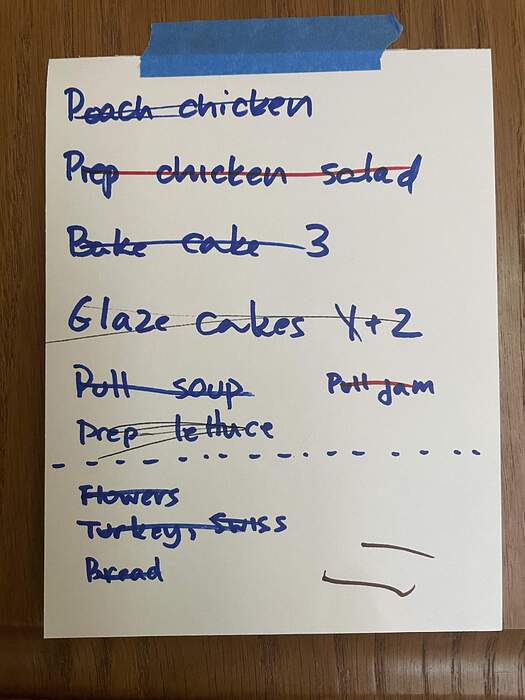 Poach chicken
Prep chicken salad
Bake cake 3
Glaze cakes 1+2
Pull soup Pull jam
Prep lettuce
Flowers
Turkey, Swiss
Bread